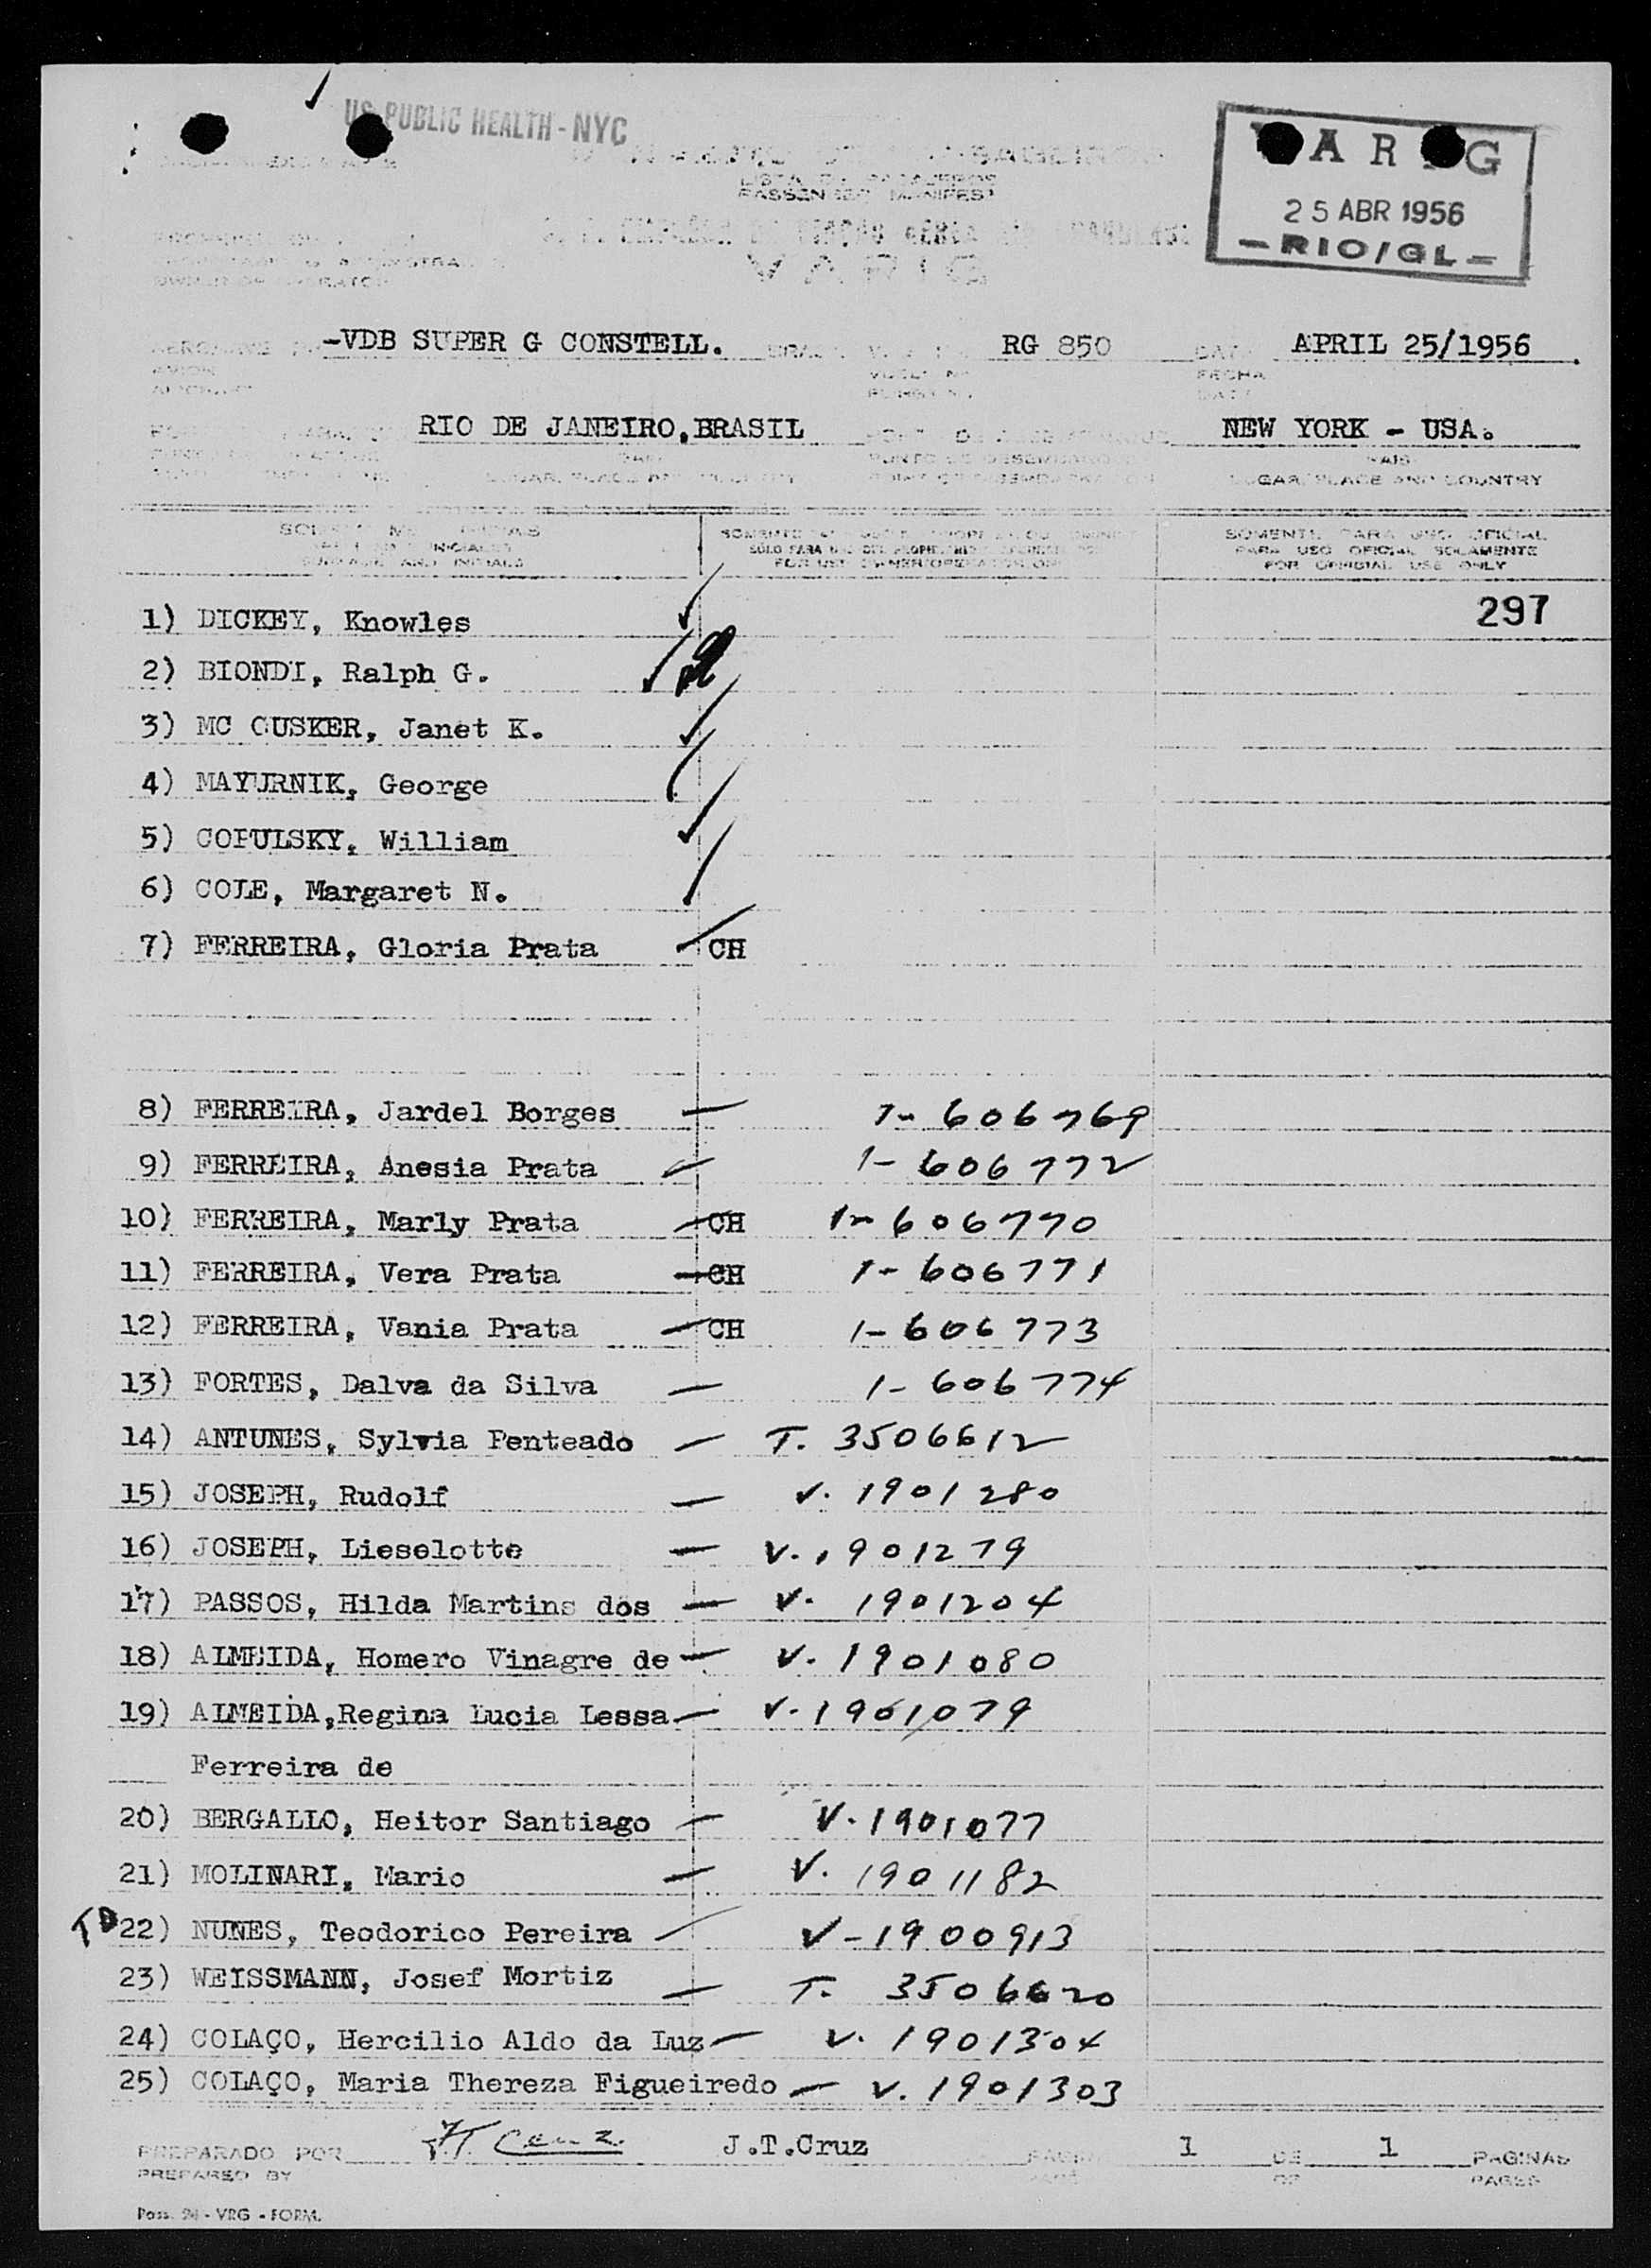 US PUBLIC HEALTH - NYC
VARIG
25 ABR 1956
-RIO/GL-
PASSENGER MANIFEST
VARIG
-VDB SUPER G CONSTELL. RG 850 APRIL 25/1956
FECHA
RIO DE JANEIRO, BRASIL NEW YORK - USA.
PAIS
LUGAR, PLACE AND COUNTRY
SOMENTE PARA USO OFICIAL
PARA USO OFICIAL SOLAMENTE
FOR OFFICIAL USE ONLY
297
1) DICKEY, Knowles
2) BIONDI, Ralph G.
3) MC CUSKER, Janet K.
4) MAYURNIK, George
5) COPULSKY, William
6) COLE, Margaret N.
7) FERREIRA, Gloria Prata CH
8) FERREIRA, Jardel Borges 1-606769
9) FERREIRA, Anesia Prata 1-606772
10) FERREIRA, Marly Prata CH 1-606770
11) FERREIRA, Vera Prata CH 1-606771
12) FERREIRA, Vania Prata CH 1-606773
13) FORTES, Dalva da Silva 1-606774
14) ANTUNES, Sylvia Penteado T. 3506612
15) JOSEPH, Rudolf V. 1901280
16) JOSEPH, Lieselotte V. 1901279
17) PASSOS, Hilda Martins dos V. 1901204
18) ALMEIDA, Homero Vinagre de V. 1901080
19) ALMEIDA,Regina Lucia Lessa V. 1901079
Ferreira de
20) BERGALLO, Heitor Santiago V. 1901077
21) MOLINARI, Mario V. 1901182
TD 22) NUNES, Teodorico Pereira V-1900913
23) WEISSMANN, Josef Mortiz T. 3506620
24) COLAÇO, Hercilio Aldo da Luz V. 1901304
25) COLAÇO, Maria Thereza Figueiredo V. 1901303
PREPARADO POR J.T. Cruz J.T.Cruz PAGINA 1 DE 1 PAGINAS
PREPARED BY PAGE OF PAGES
Pass. 24 - VRG - FORM.